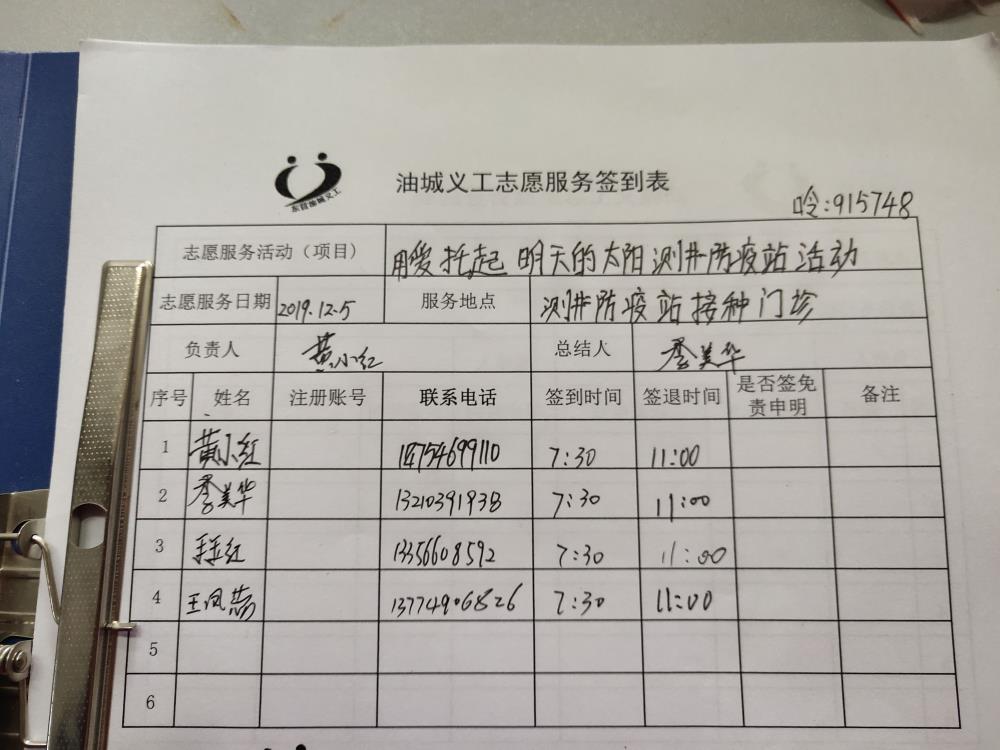 东营油城义工
油城义工志愿服务签到表
吟:915748
志愿服务活动（项目） 用爱托起明天的太阳测井防疫站活动
志愿服务日期 2019.12.5 服务地点 测井防疫站接种门诊
负责人 黄小红 总结人 季美华
序号 姓名 注册账号 联系电话 签到时间 签退时间 是否签免责申明 备注
1 黄小红 7:30 11:00
2 季美华 13210391938 7:30 11:00
3 13356608592 7:30 11:00
4 王凤 13774906826 7:30 11:00
5
6